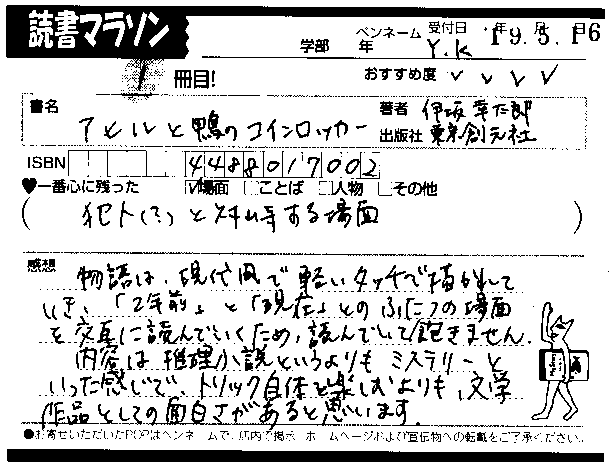 読書マラソン
学部 年 ペンネーム Y.K 受付日 19.5.16
1 冊目! おすすめ度 ✓ ✓ ✓ ✓
書名 アヒルと鴨のコインロッカー 著者 伊坂幸太郎
出版社 東京創元社
ISBN 4488017002
♥一番心に残った ☑場面 □ことば □人物 □その他
( 犯人(?)と対峙する場面 )
感想
物語は、現代風で軽いタッチで描かれて
いき、「2年前」と「現在」とのふたつの場面
を交互に読んでいくため、読んでいて飽きません。
内容は推理小説というよりもミステリーと
いった感じで、トリック自体を楽しむよりも、文学
作品としての面白さがあると思います。
●お寄せいただいたPOPはペンネームで、店内で掲示、ホームページおよび宣伝物への転載をご了承ください。